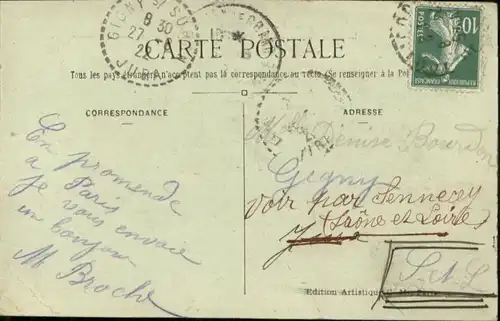 GIGNY S/ SUR
8 30
27
22
JURA
10c
POSTES
CARTE POSTALE
Tous les pays étrangers n'acceptent pas la correspondance au recto (Se renseigner à la Po
CORRESPONDANCE
ADRESSE
En promenade
à Paris
je vous envoie
un bonjour
M Broch
Mlle Denise Bourdon
Gigny
voir par Sennecey
(Saône et Loire)
Jura
S. et L
Edition Artistique